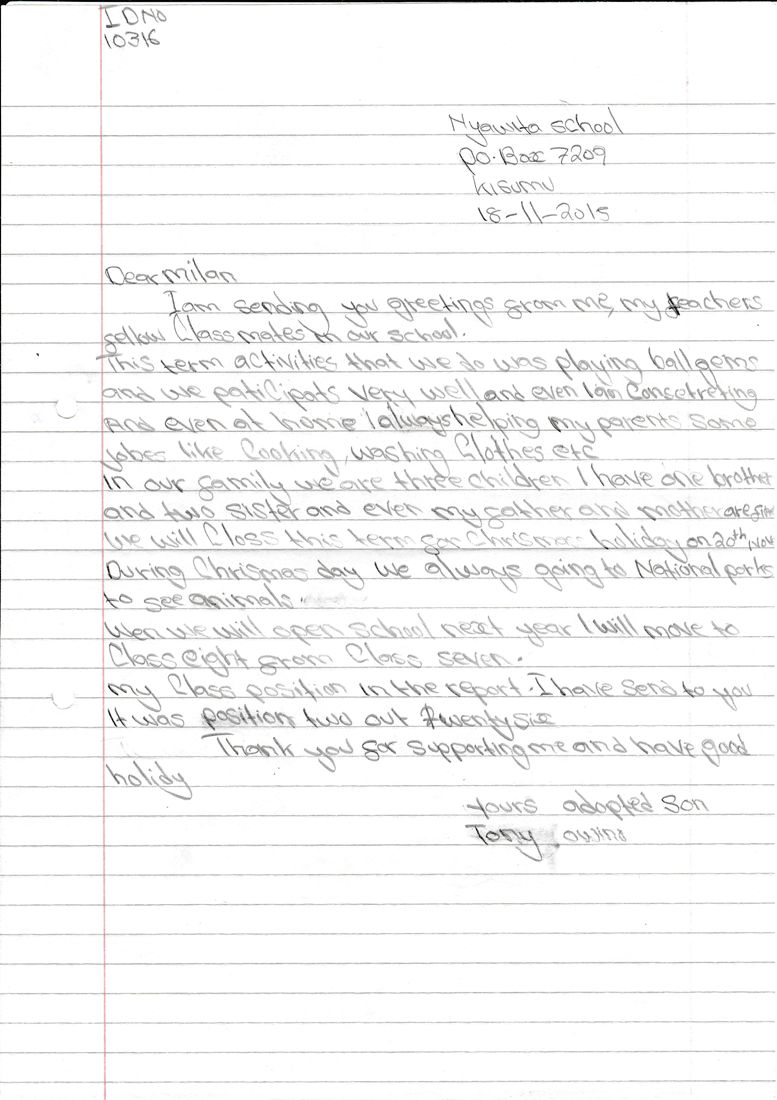 ID No
10316
Nyawita school
P.O. Box 7209
Kisumu
18-11-2015
Dear Milan
I am sending you greetings from me, my teachers
fellow Classmates in our school.
This term activities that we do was playing ball gems
and we paticipats very well and even Iam Concetreting
And even at home I always helping my parents some
jobes like Cooking, washing Clothes etc
In our family we are three children I have one brother
and two sister and even my father and mother are fine
We will Closs this term for Chrismas holiday on 20th Nov
During Chrismas day we always going to National parks
to see animals.
Wen we will open school next year I will move to
Class eight from Class seven.
My Class position in the report. I have send to you
It was position two out twenty six
Thank you for supporting me and have good
holidy
Yours adopted Son
Tony Owino